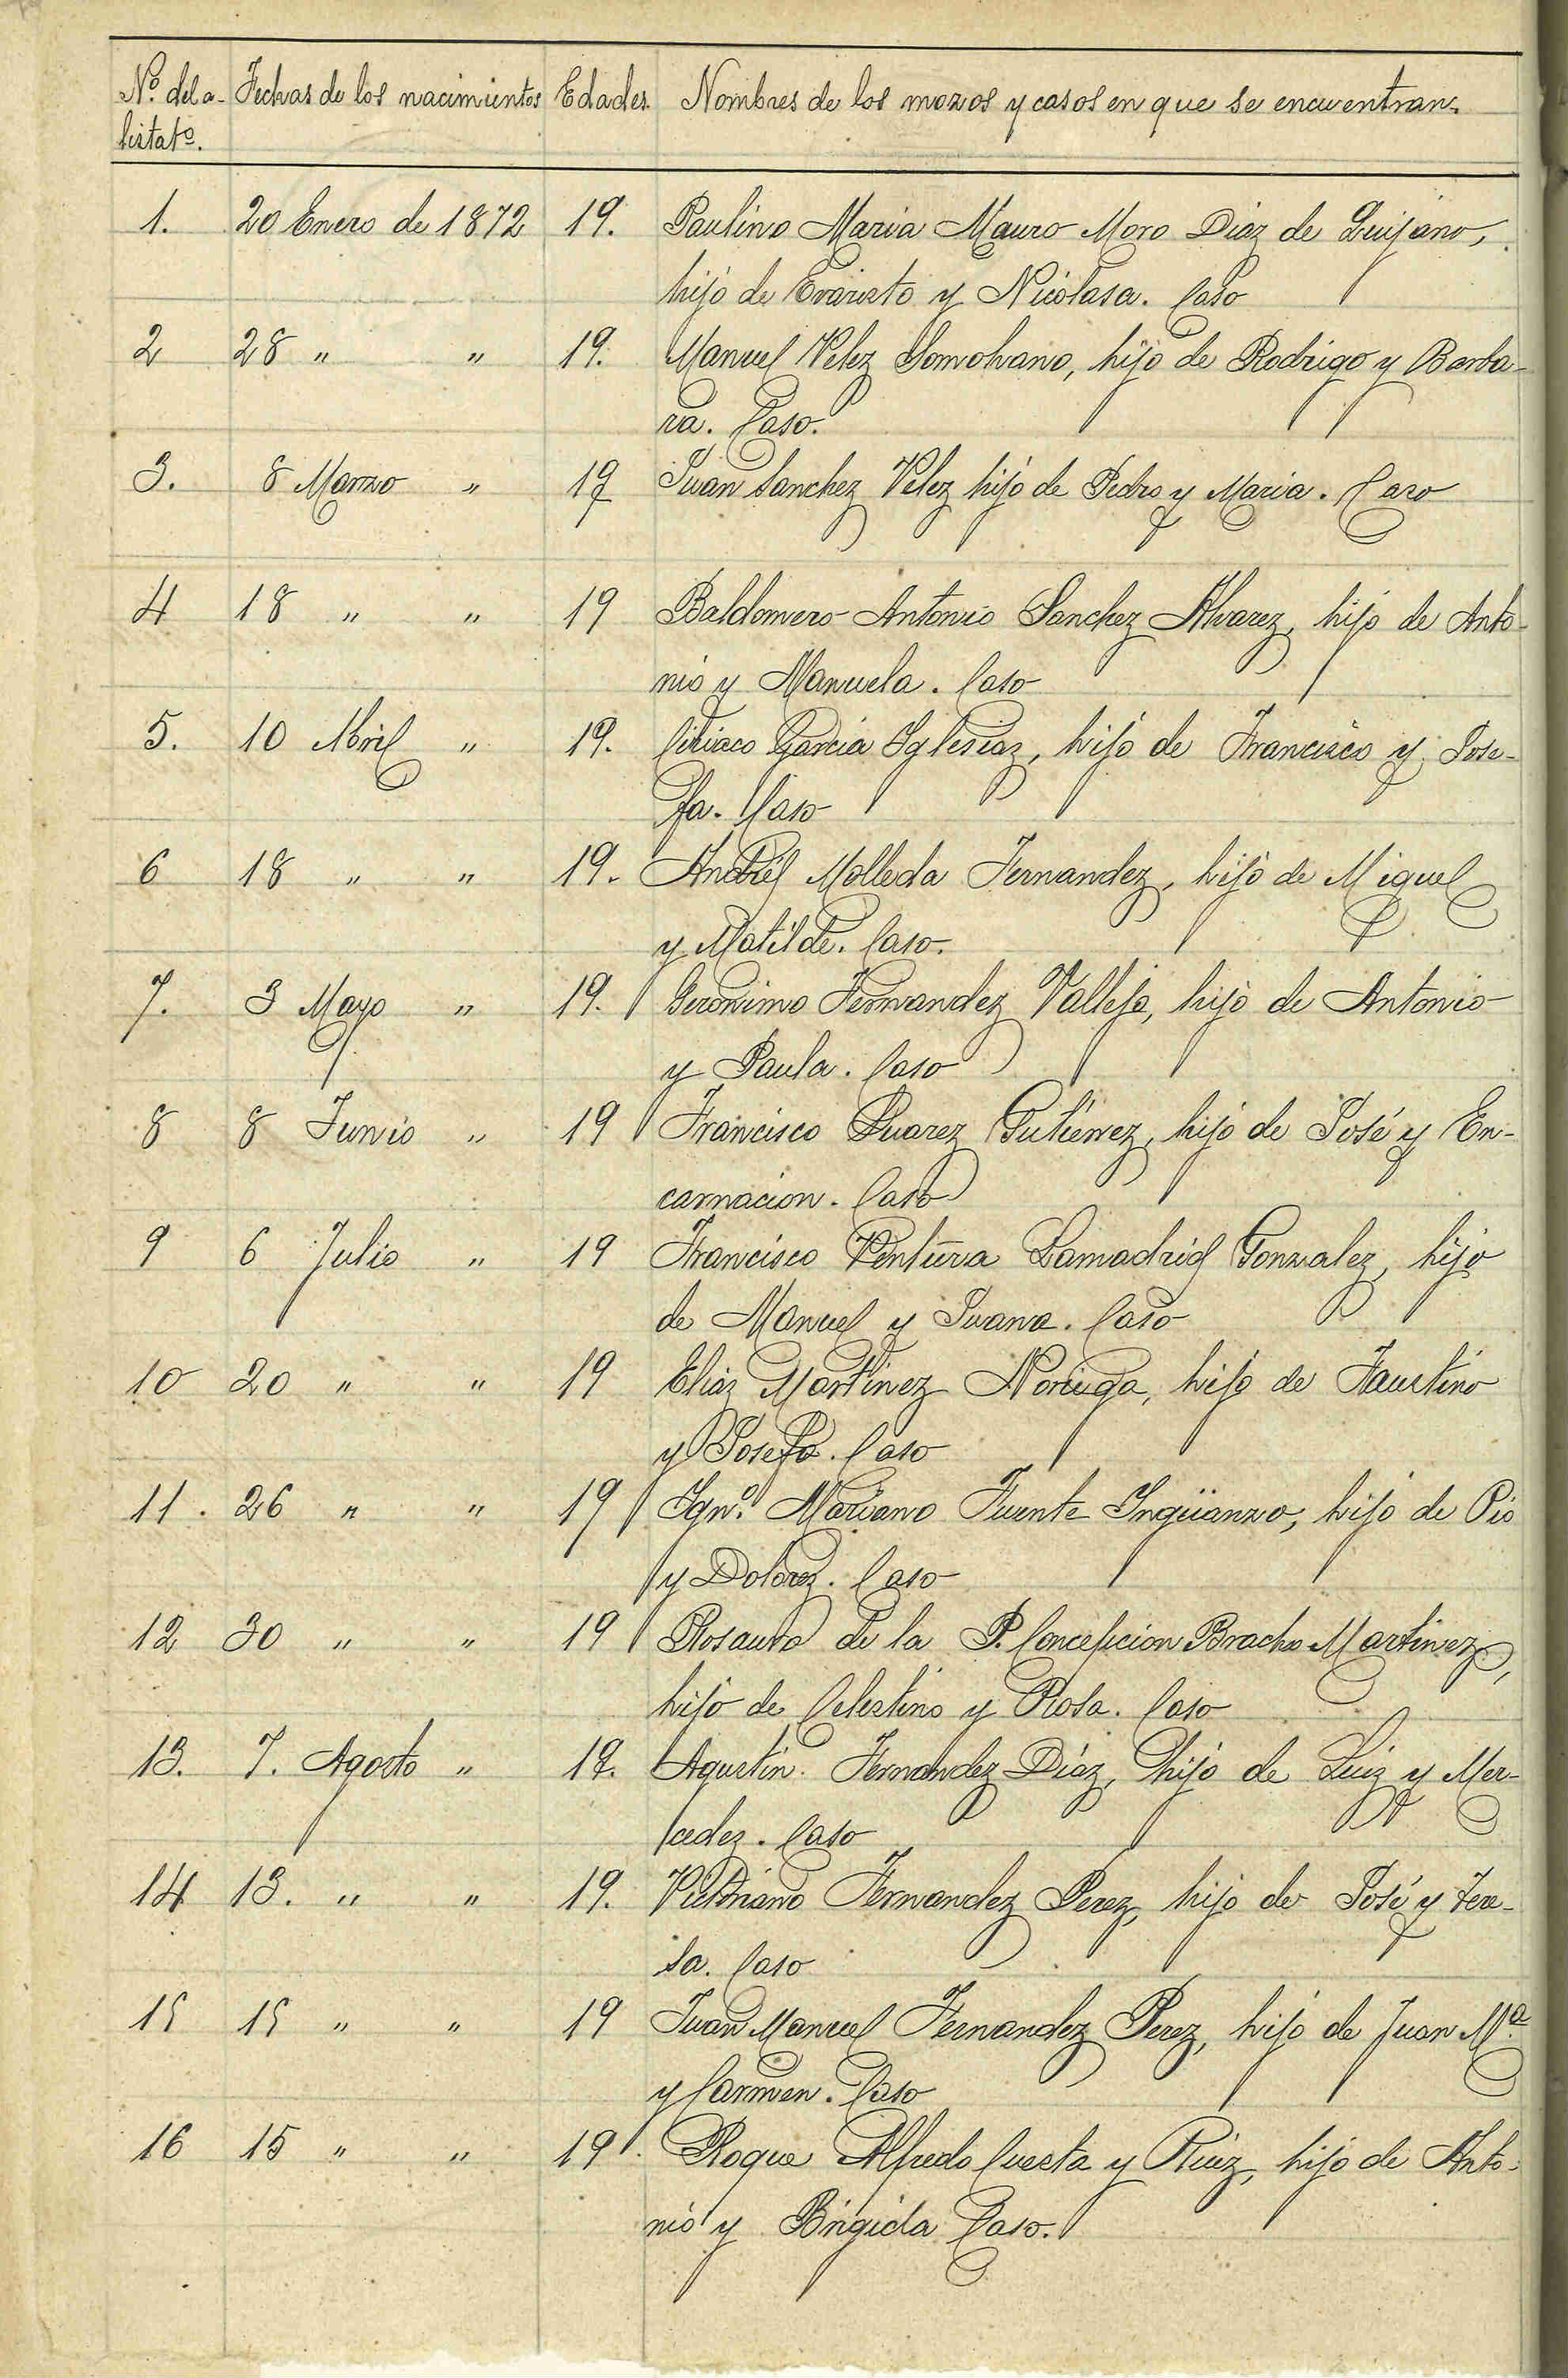 Nº. del a- Fechas de los nacimientos Edades. Nombres de los mozos y casos en que se encuentran.
listatº.
1. 20 Enero de 1872 19. Paulino Maria Mauro Moro Diaz de Quijano,
hijo de Evaristo y Nicolasa. Caso
2 28 " " 19. Manuel Velez Somohano, hijo de Rodrigo y Barba-
ra. Caso.
3. 8 Marzo " 19 Juan Sanchez Velez hijo de Pedro y Maria. Caso
4 18 " " 19 Baldomero Antonio Sanchez Alvarez, hijo de Anto-
nio y Manuela. Caso
5. 10 Abril " 19. Ciriaco Garcia Iglesias, hijo de Francisco y Jose-
fa. Caso
6 18 " " 19. Andrés Molleda Fernandez, hijo de Miguel
y Matilde. Caso.
7. 3 Mayo " 19. Geronimo Fernandez Vallejo, hijo de Antonio
y Paula. Caso
8 8 Junio " 19 Francisco Suarez Gutierrez, hijo de José y En-
carnacion. Caso
9 6 Julio " 19 Francisco Ventura Lamadrid Gonzalez, hijo
de Manuel y Juana. Caso
10 20 " " 19 Elias Martinez Noriega, hijo de Faustino
y Josefa. Caso
11. 26 " " 19 Ignº. Mariano Fuente Ingüanzo, hijo de Pio
y Dolores. Caso
12 30 " " 19 Rosauro de la P. Concepcion Bracho Martinez,
hijo de Celestino y Rosa. Caso
13. 7. Agosto " 19. Agustin Fernandez Diaz, hijo de Luis y Mer-
cedes. Caso
14 13. " " 19. Victoriano Fernandez Perez, hijo de José y Tere-
sa. Caso
15 15 " " 19 Juan Manuel Fernandez Perez, hijo de Juan Mª.
y Carmen. Caso
16 15 " " 19 Roque Alfredo Cuesta y Ruiz, hijo de Anto-
nio y Brigida Caso.